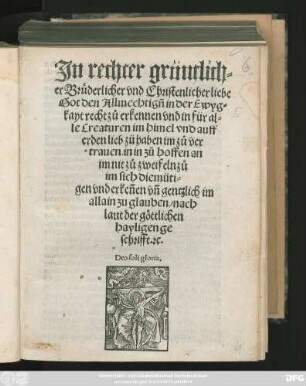 In rechter grüntlich-
er Brüderlicher vnd Christenlicher liebe
Got den Allmechtigñ in der Ewyg-
kayt recht zů erkennen vnd in für al-
le Creaturen im himel vnd auff
erden lieb zů haben im zů ver
trauen. in in zů hoffen an
im nit zů zweifeln zů
im sich diemüti-
gen vnd erkeñen vñ gentzlich im
allain zu glauben/nach
laut der göttlichen
hayligen ge
schrifft. ⁊c.
Deo soli gloria.